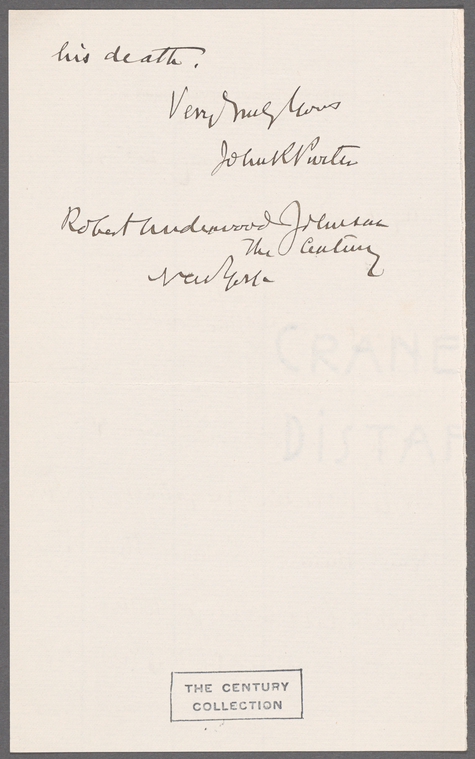 his death.
Very truly Yours
John K Porter
Robert Underwood Johnson
The Century
New York
CRANE
DISTA
THE CENTURY
COLLECTION